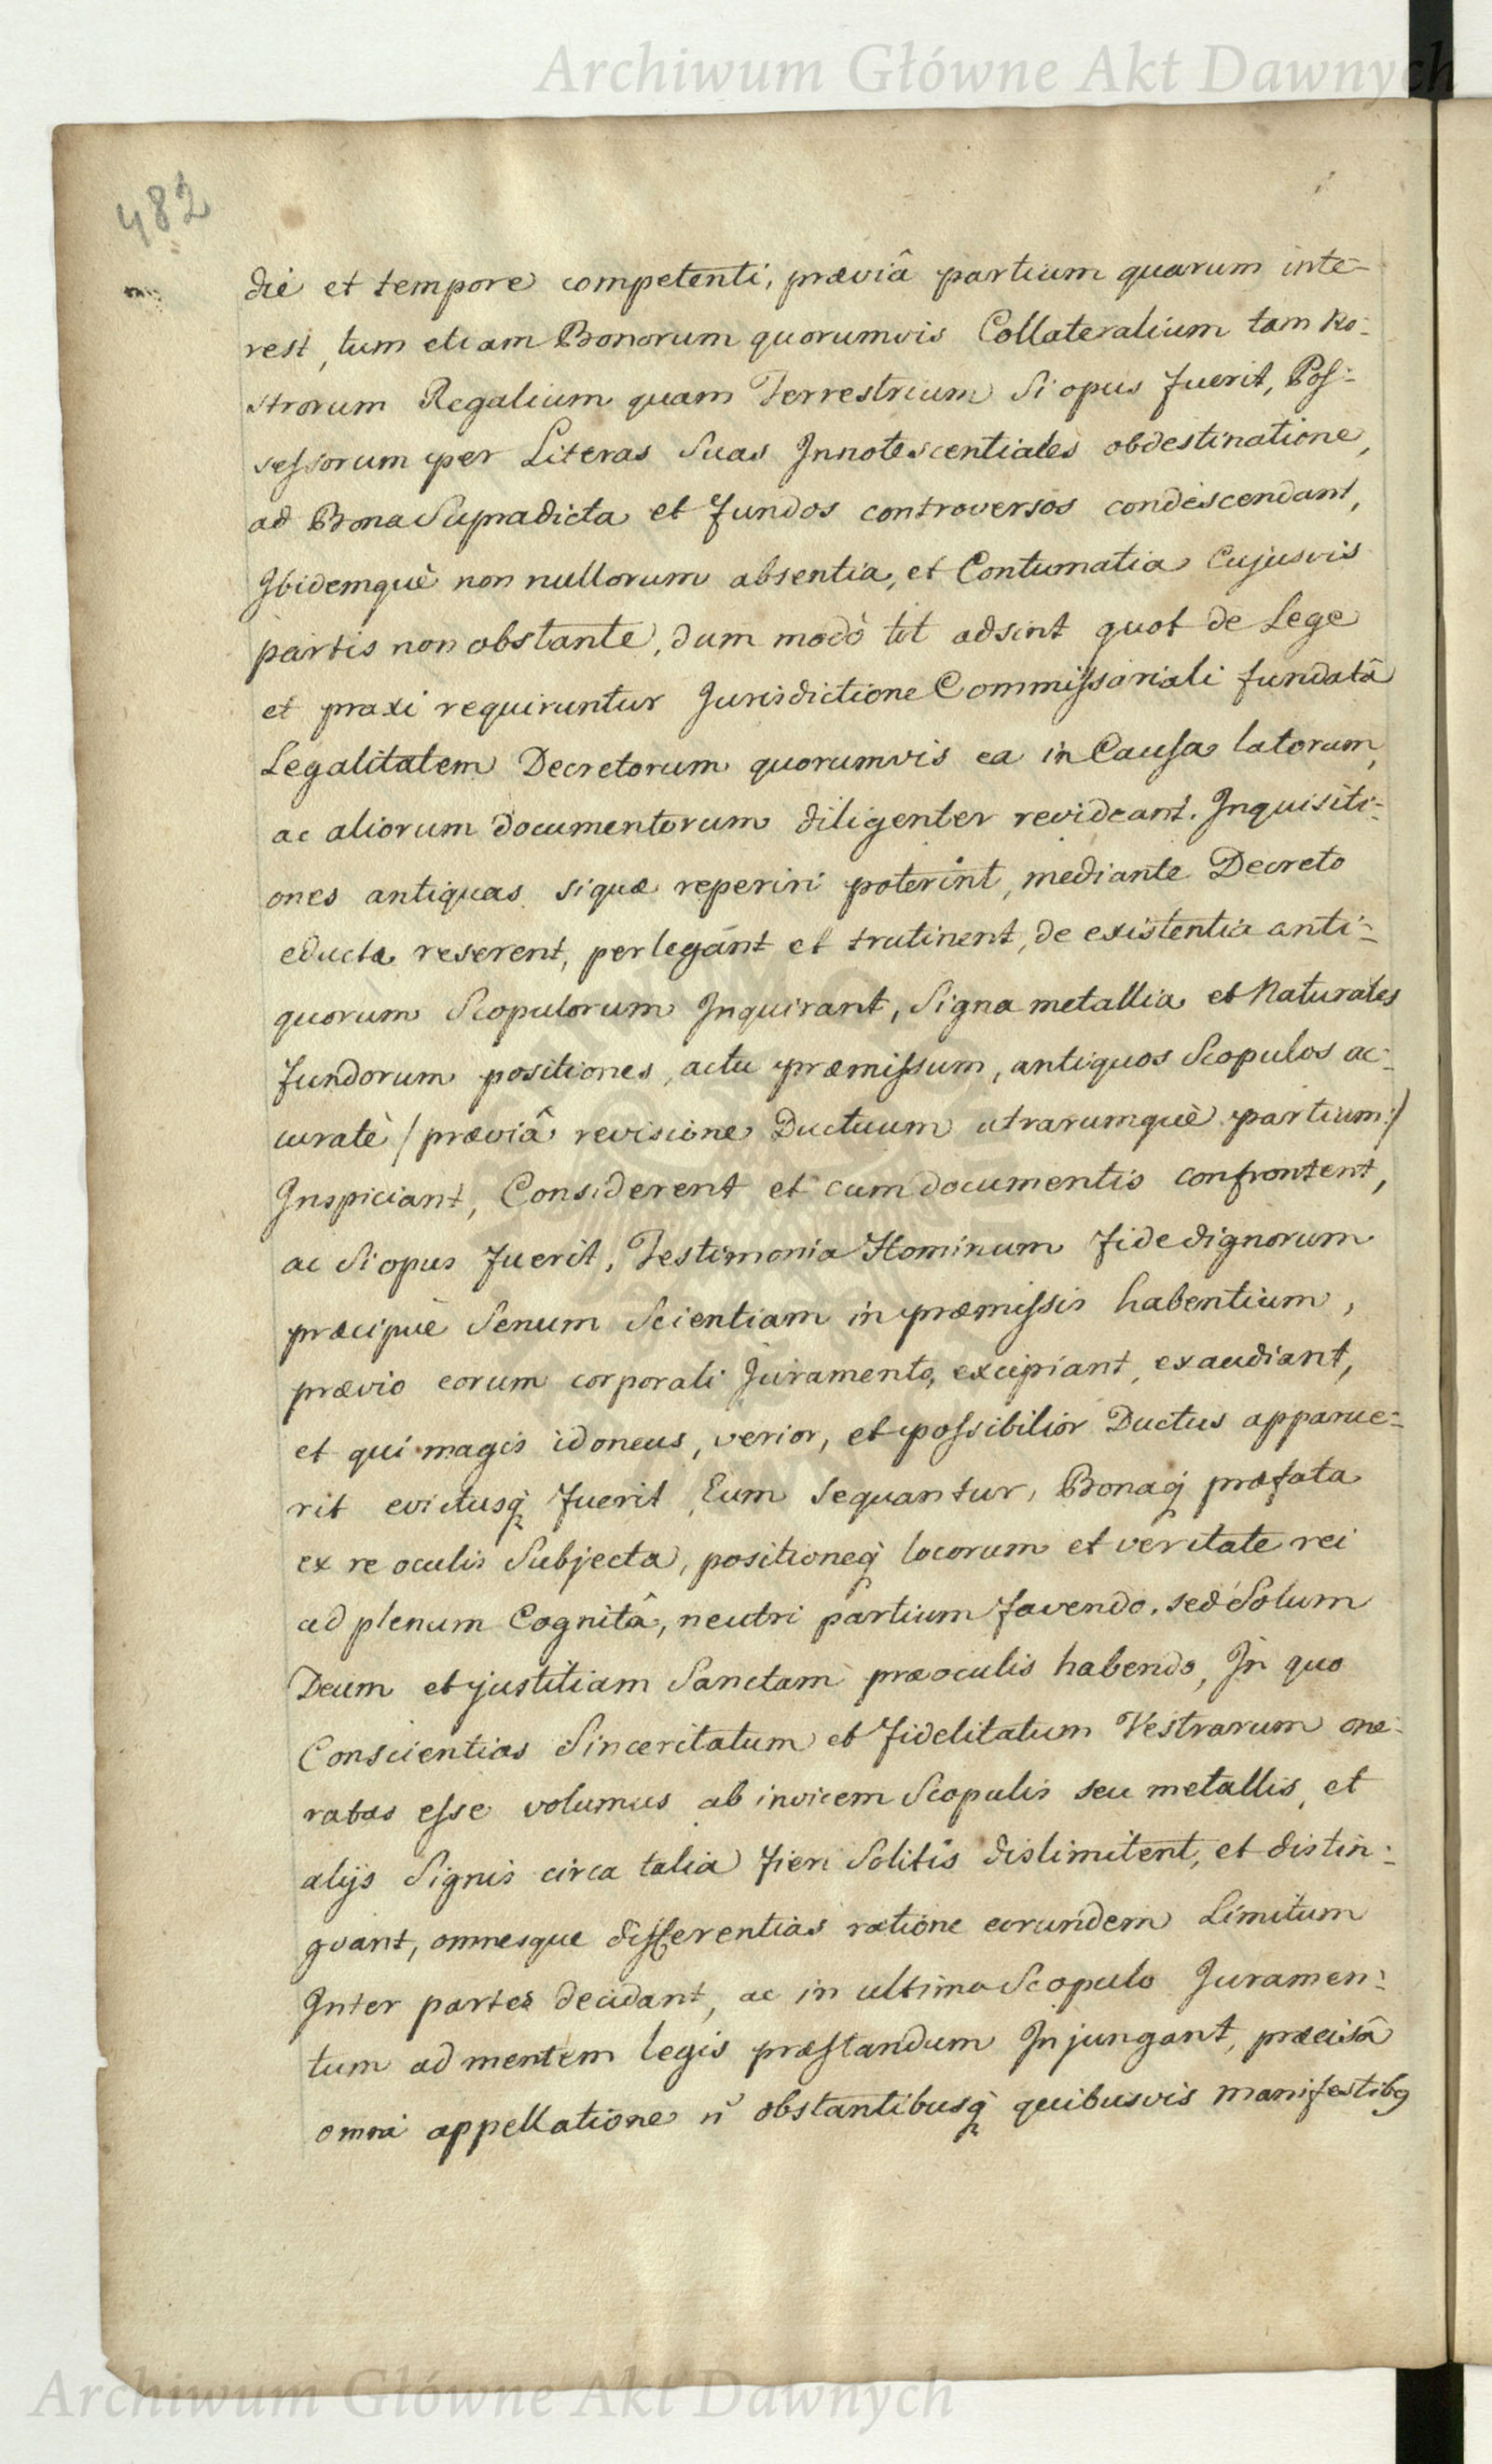 Archiwum Główne Akt Dawnych
482
die et tempore competenti, præviâ partium quarum inte-
rest, tum etiam Bonorum quorumvis Collateralium tam No-
strorum Regalium quam Terrestrium Si opus fuerit, Pos-
sessorum per Literas Suas Innotescentiales obdestinatione,
ad Bona Supradicta et fundos controversos condescendant,
Ibidemquè non nullorum absentia, et Contumatia Cujusvis
partis non obstante, dum modò tot adsint quot de Lege
et praxi requiruntur Jurisdictione Commissariali fundatâ
Legalitatem Decretorum quorumvis ea in Causa latorum,
ac aliorum documentorum diligenter revideant. Inquisiti-
ones antiquas siquæ reperiri poterint, mediante Decreto
educta reserent, perlegant et trutinent, de existentia anti-
quorum Scopulorum Inquirant, Signa metallia et Naturales
fundorum positiones, actu præmissum, antiquos Scopulos ac-
curatè /præviâ revisione Ductuum utrarumquè partium:/
Inspiciant, Considerent et cum documentis confrontent,
ac Si opus fuerit, Testimonia Hominum fide dignorum
præcipuè Senum Scientiam in præmissis habentium,
prævio eorum corporali Juramento, excipiant, exaudiant,
et qui magis idoneus, verior, et possibilior Ductus apparue-
rit evictusq fuerit, Eum Sequantur, Bonaq præfata
ex re oculis Subjecta, positioneq locorum et veritate rei
ad plenum Cognitâ, neutri partium favendo, sed Solum
Deum et justitiam Sanctam præ oculis habendo, In quo
Conscientias Sinceritatum et Fidelitatum Vestrarum one-
ratas esse volumus ab invicem Scopulis seu metallis, et
alijs Signis circa talia fieri Solitis dislimitent, et distin-
gvant, omnesque differentias ratione eorundem Limitum
Inter partes decidant, ac in ultimo Scopulo Juramen-
tum ad mentem legis præstandum Injungant, præcisâ
omni appellatione ñ obstantibusq quibusvis manifestibq
Archiwum Główne Akt Dawnych